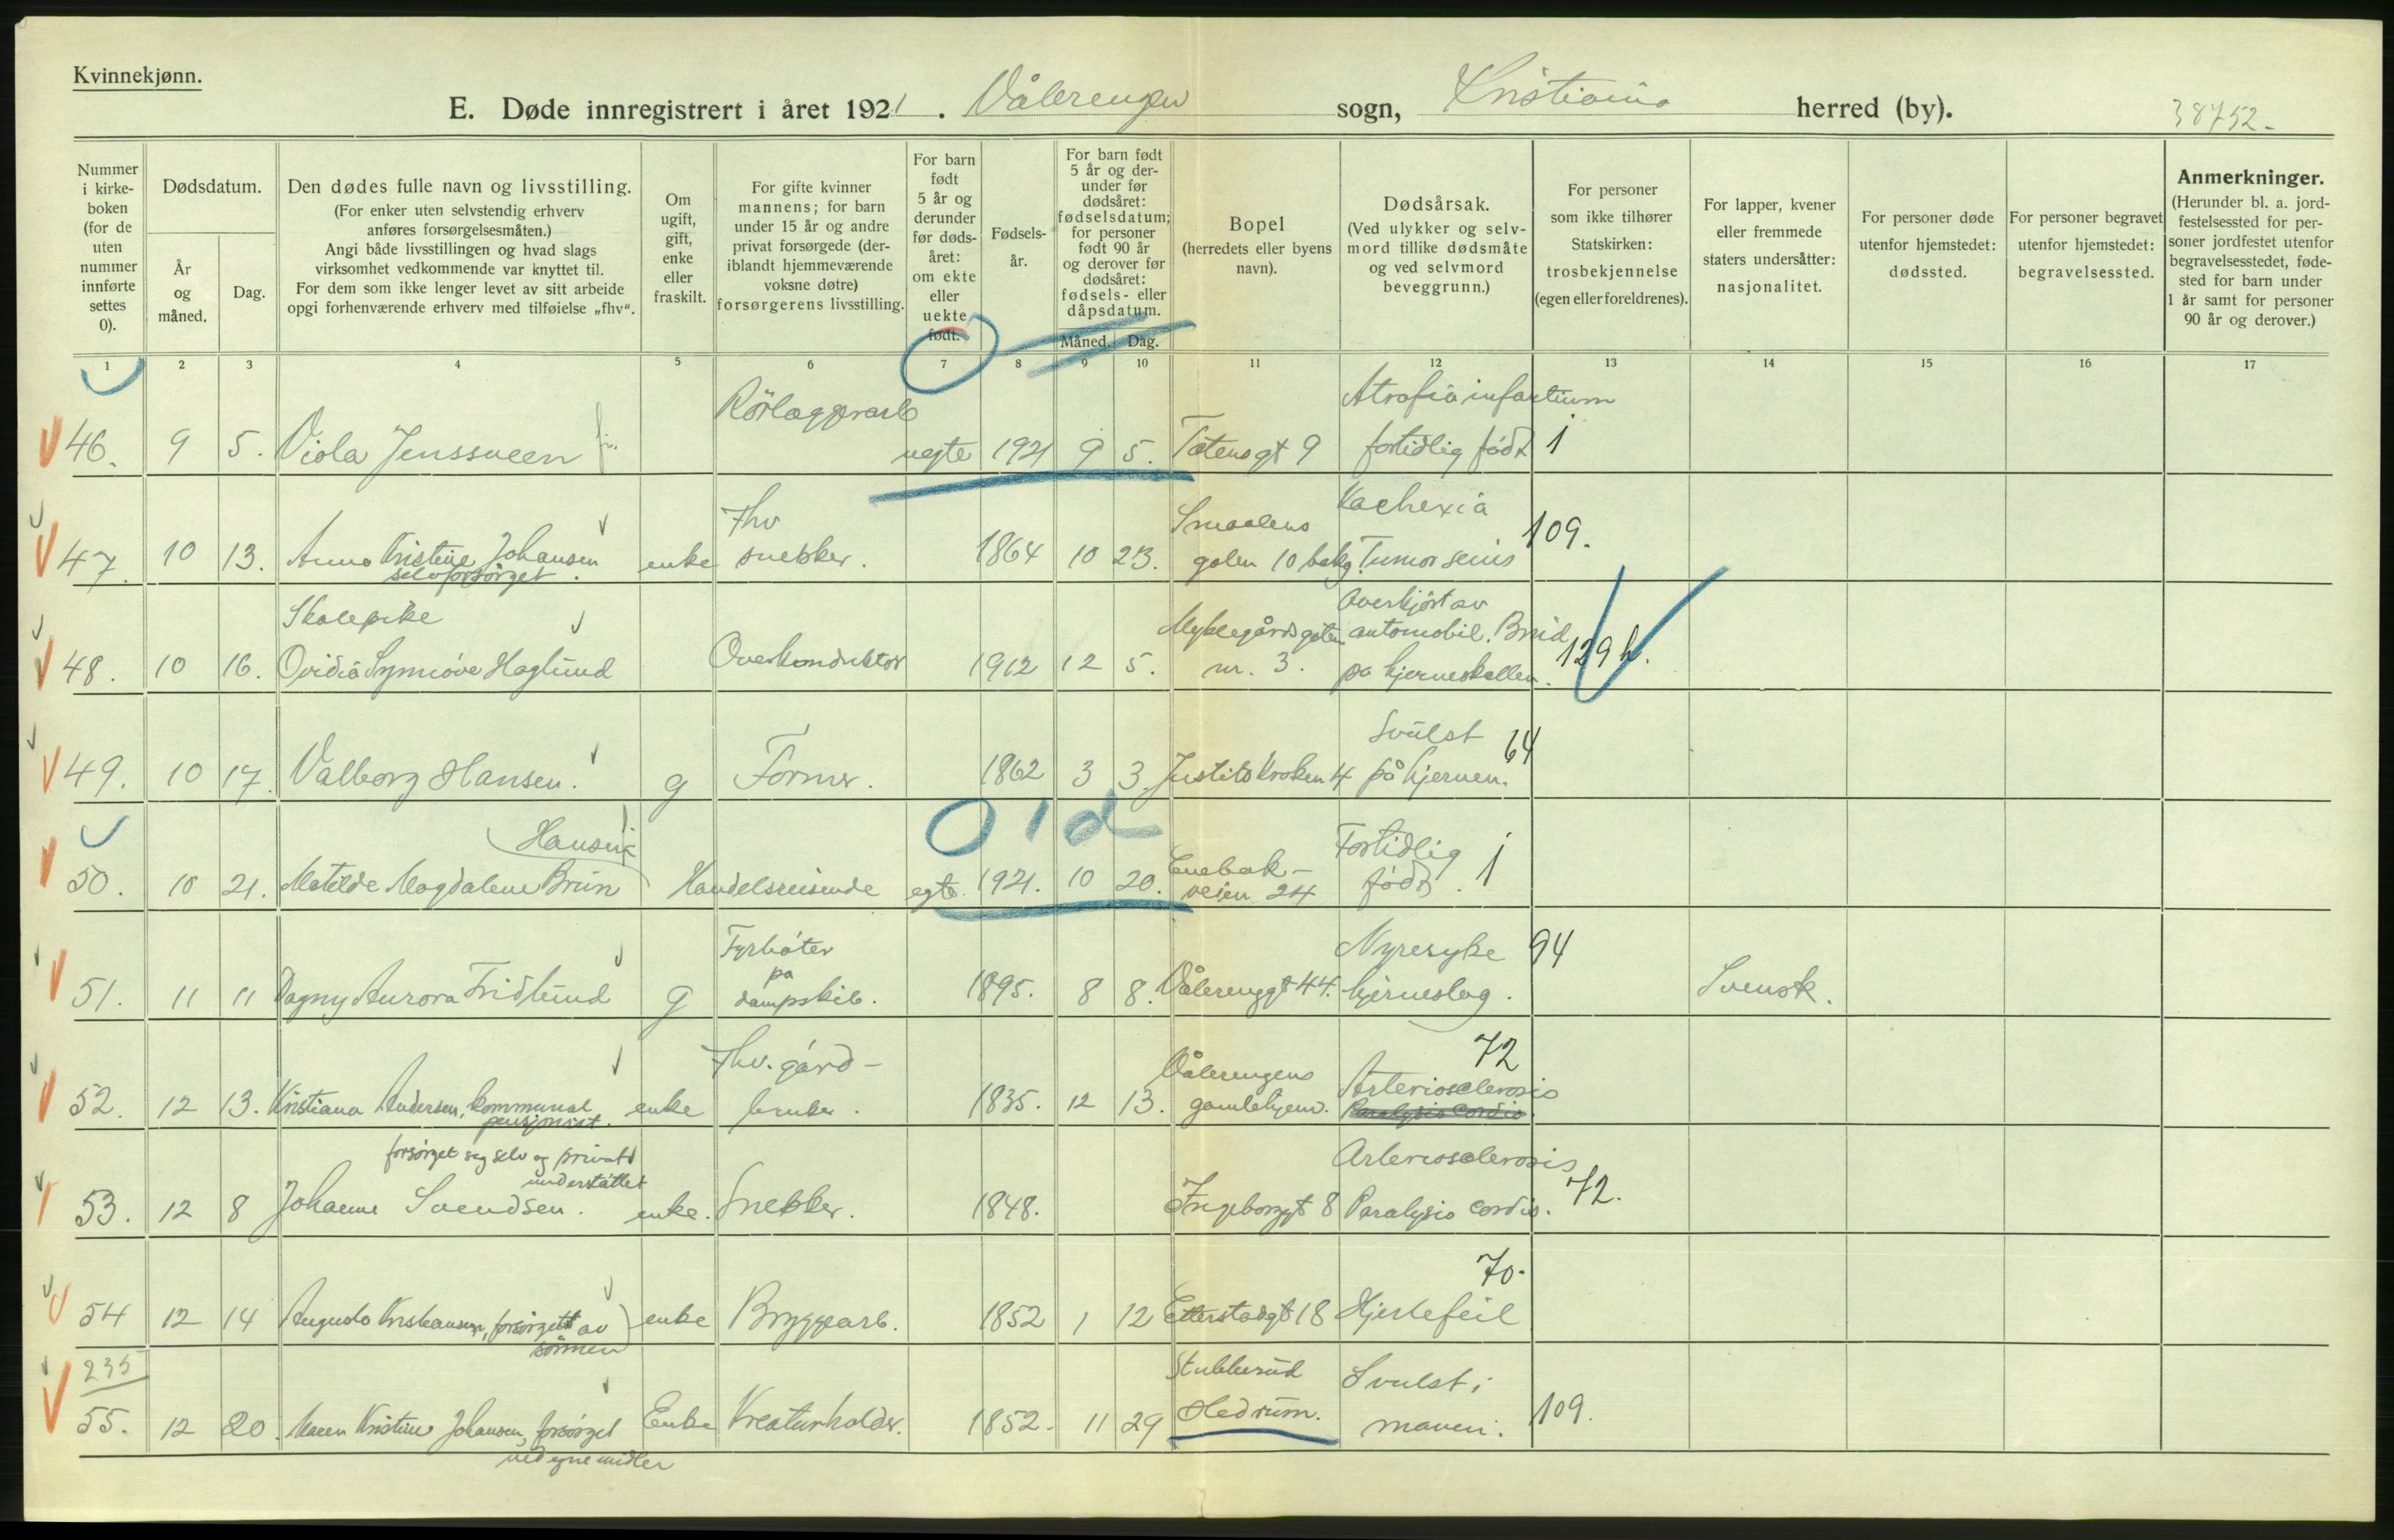 Kvinnekjønn.
E. Døde innregistrert i året 1921. Vålerengen sogn, Kristiania herred (by). 38752.-
Nummer i kirke-boken (for de uten nummer innførte settes 0).
Dødsdatum.
År og måned.
Dag.
Den dødes fulle navn og livsstilling.
(For enker uten selvstendig erhverv anføres forsørgelsesmåten.)
Angi både livsstillingen og hvad slags virksomhet vedkommende var knyttet til.
For dem som ikke lenger levet av sitt arbeide opgi forhenværende erhverv med tilføielse „fhv“.
Om ugift, gift, enke eller fraskilt.
For gifte kvinner mannens; for barn under 15 år og andre privat forsørgede (der-iblandt hjemmeværende voksne døtre) forsørgerens livsstilling.
For barn født 5 år og derunder før døds-året: om ekte eller uekte født.
Fødsels-år.
For barn født 5 år og der-under før dødsåret: fødselsdatum; for personer født 90 år og derover før dødsåret: fødsels- eller dåpsdatum.
Måned. Dag.
Bopel (herredets eller byens navn).
Dødsårsak.
(Ved ulykker og selv-mord tillike dødsmåte og ved selvmord beveggrunn.)
For personer som ikke tilhører Statskirken: trosbekjennelse (egen eller foreldrenes).
For lapper, kvener eller fremmede staters undersåtter: nasjonalitet.
For personer døde utenfor hjemstedet: dødssted.
For personer begravet utenfor hjemstedet: begravelsessted.
Anmerkninger.
(Herunder bl. a. jord-festelsessted for per-soner jordfestet utenfor begravelsesstedet, føde-sted for barn under 1 år samt for personer 90 år og derover.)
1 2 3 4 5 6 7 8 9 10 11 12 13 14 15 16 17
46. 9 5. Viola Jenssveen Rörlæggerarb uegte 1921 9 5. Totensgt 9 Atrofia infantium fortidlig født 1
47. 10 13. Anna Kristine Johansen selvforsørget. enke Fhv snekker. 1864 10 23. Smaalens gaten 10 bakg. Kachexia Tumor 109.
48. 10 16. Skolepike Ovidia Synnöve Haglund Overkonduktör 1912 12 5. Myklegårdsgaten nr. 3. Overkjört av automobil. Brud på hjerneskallen. 129 h.
49. 10 17. Valborg Hansen. g Former. 1862 3 3. Justitskroken 4 Svulst på hjernen. 64
old
50. 10 21. Matilde Magdalene Brun (Hansen) Handelsreisende egte. 1921. 10 20. Enebak-veien 24 Fortidlig født. 1
51. 11 11 Dagny Aurora Fridlund g Fyrbøter på dampskib. 1895. 8 8. Vålerenggt 44. Nyresyke hjerneslag. 94 Svensk.
52. 12 13. Kristiana Andersen, kommunal pensjonist. enke Fhv. gård-bruker. 1835. 12 13. Vålerengens gamlehjem. Arteriosclerosis Paralysis cordis. 72
53. 12 8 Johanne Svendsen. forsörget seg selv og privat understøttet enke. Snekker. 1848. Ingeborggt 8 Arteriosclerosis Paralysis cordis. 72.
54 12 14 Augusta Kristiansen, forsörget av sönnen enke Bryggearb. 1852 1 12 Etterstadgt 18 Hjertefeil 70.
235
55. 12 20. Maren Kristine Johansen, forsörget ved egne midler Enke Kreaturholder. 1852. 11 29 Stubberud Hedrum. Svulst i maven. 109.